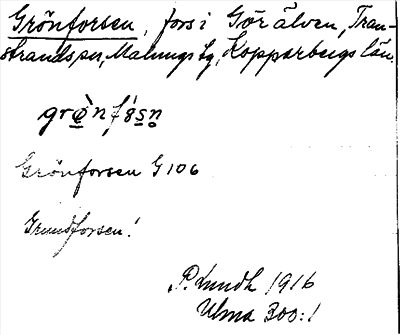 Grönforsen, fors i Görälven, Tran-
strands sn, Malungs tg, Kopparbergs län.
Grönforsen G 106
Grundforsen!
P. Lundh 1916
Ulma 300:1